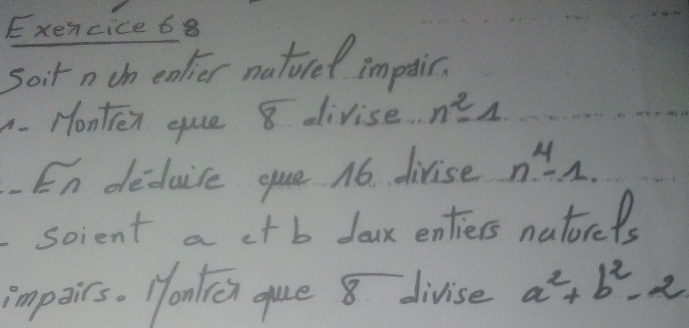 Exercice 68
Soit n un entier naturel impair.
1- Montrer que 8 divise n²-1
- En déduire que 16 divise n⁴-1.
- Soient a et b deux entiers naturels
impairs. Montrer que 8 divise a²+b²-2